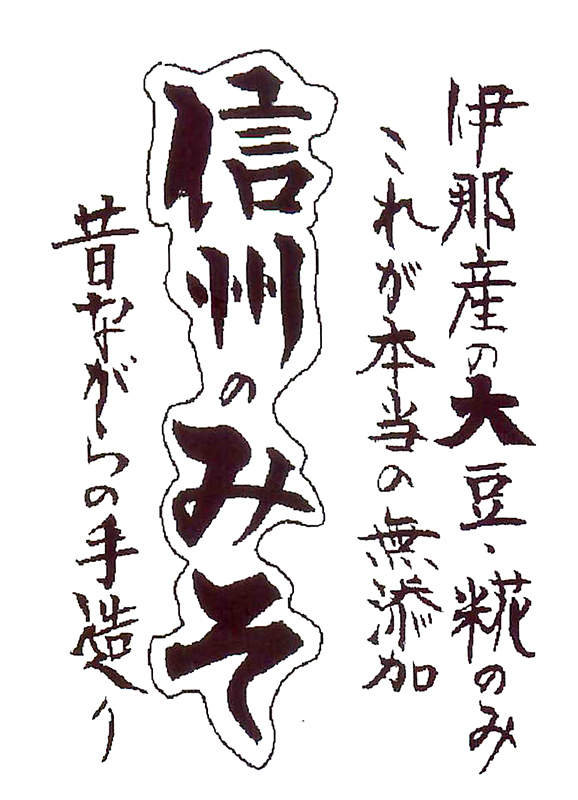 伊那産の大豆、糀のみ
これが本当の無添加
信州のみそ
昔ながらの手造り